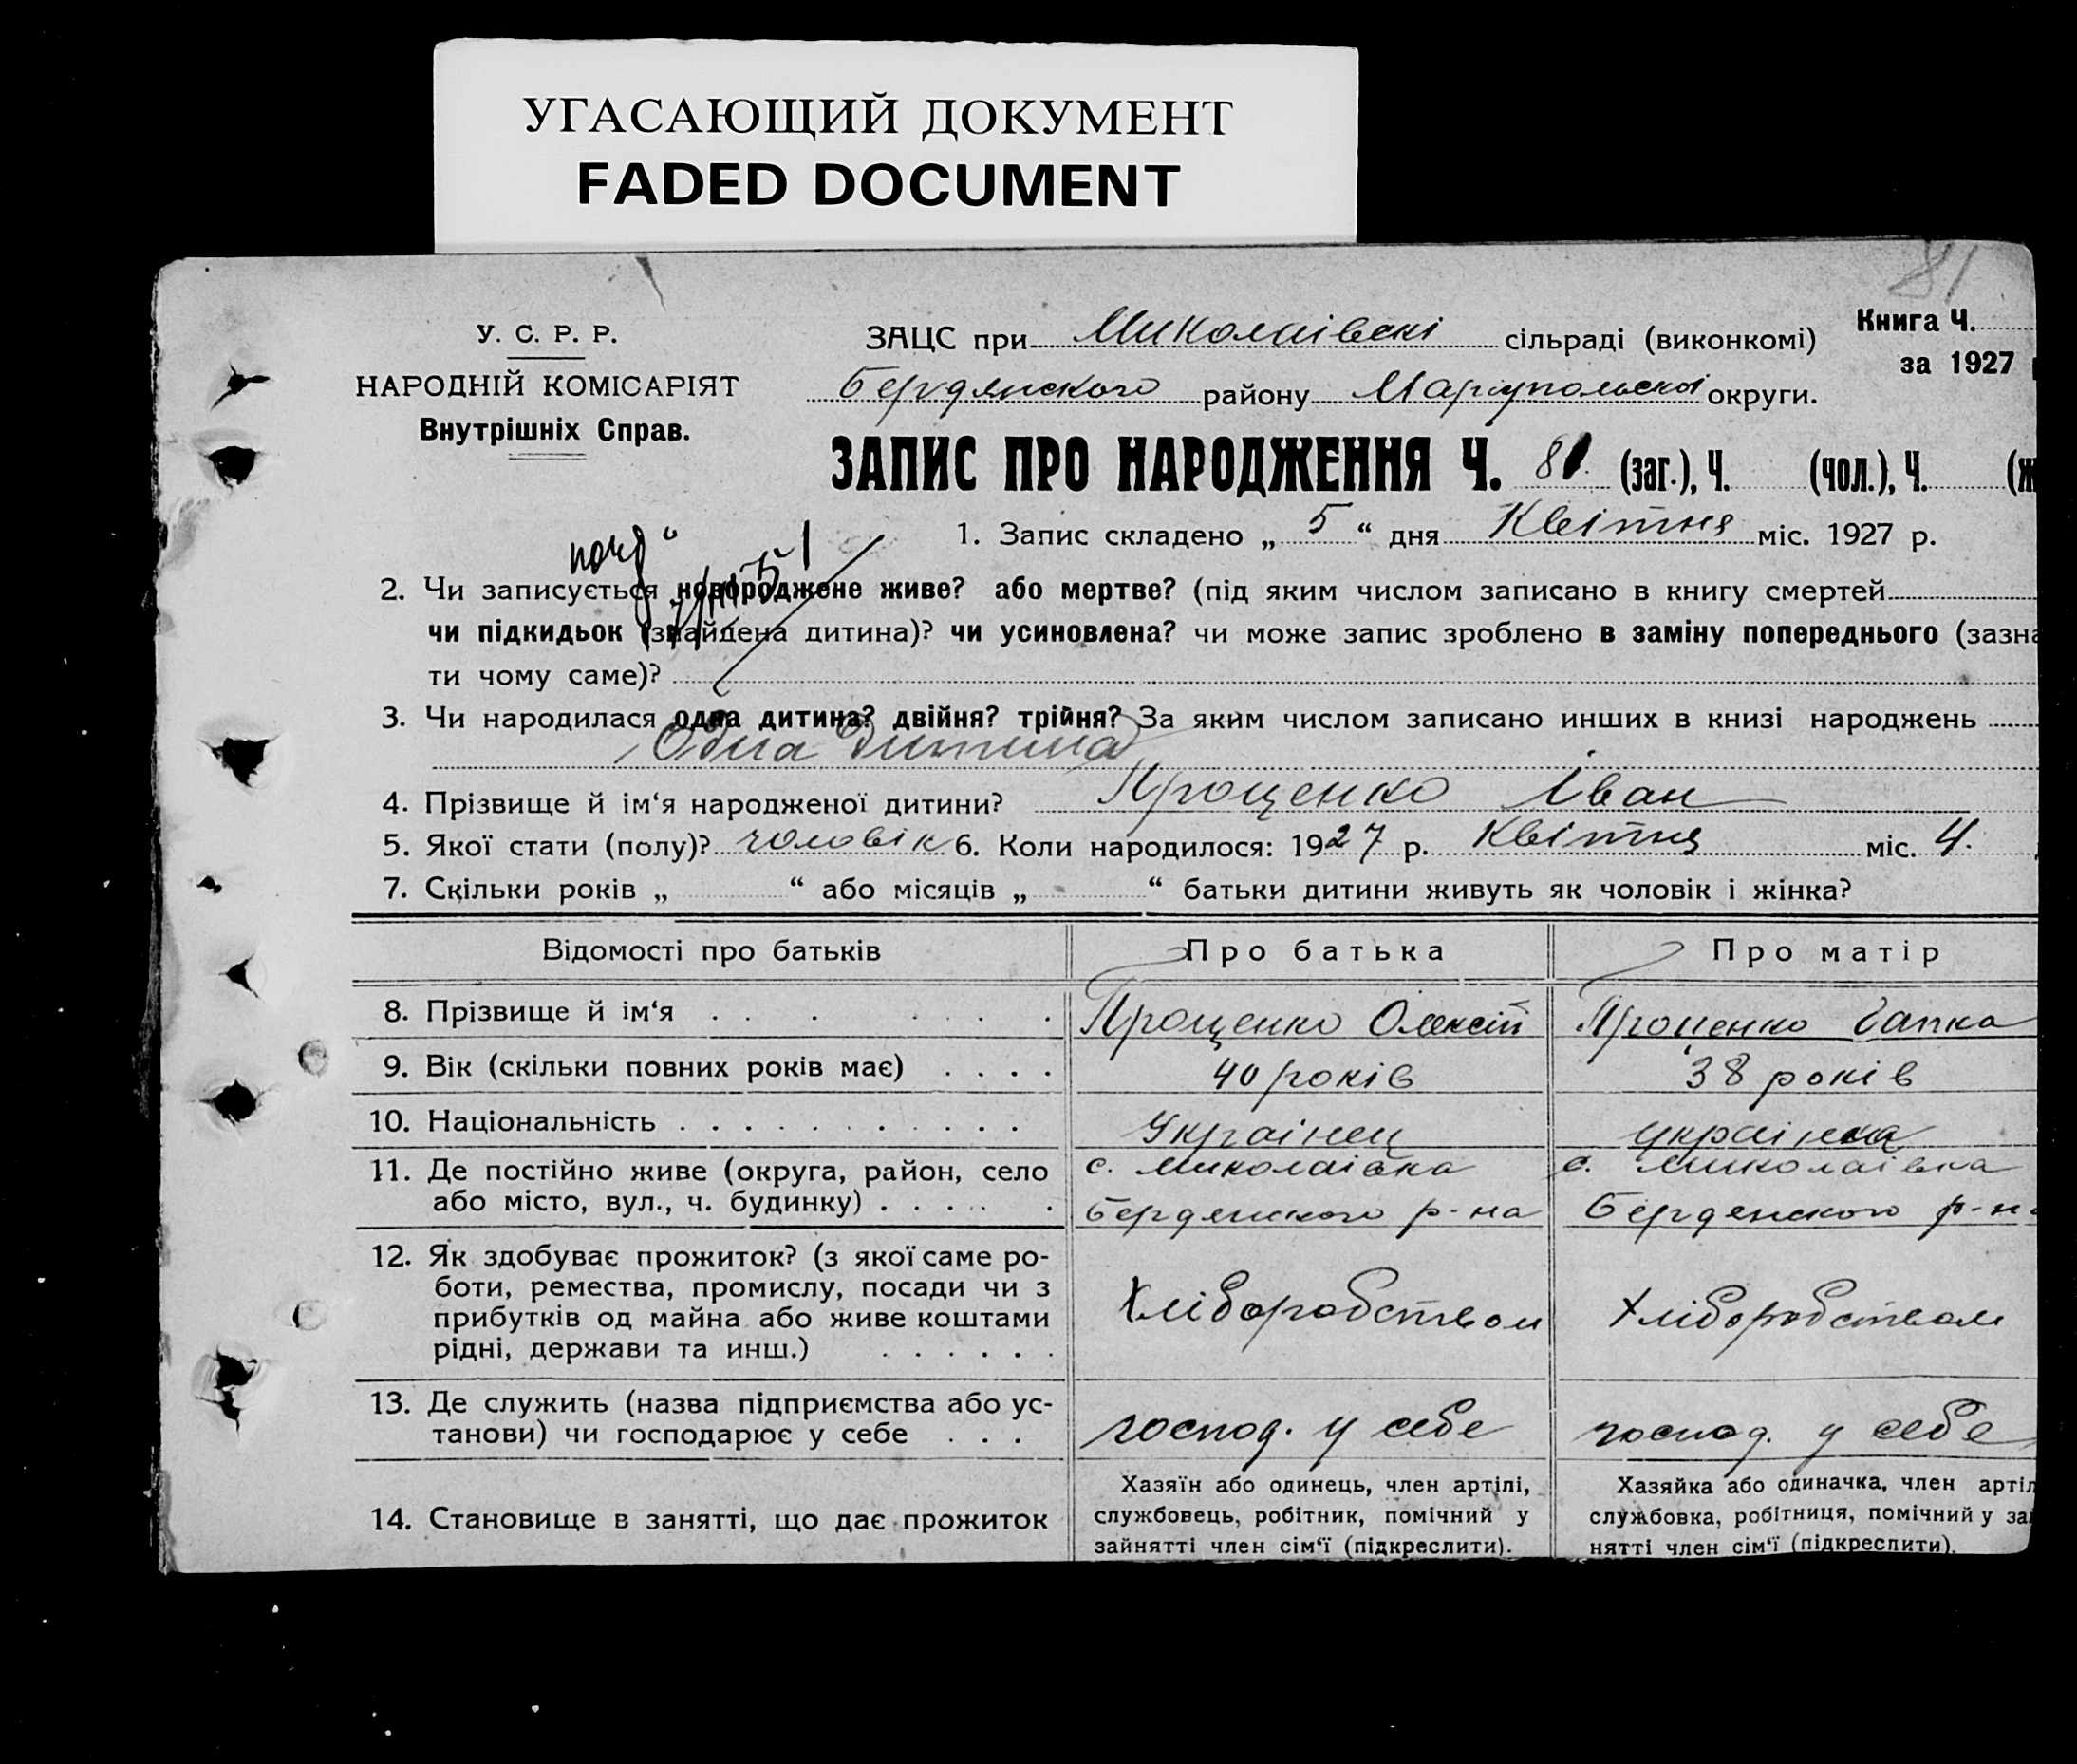 УГАСАЮЩИЙ ДОКУМЕНТ
FADED DOCUMENT
81
У. С. Р. Р.
НАРОДНІЙ КОМІСАРІЯТ
Внутрішніх Справ.
ЗАЦС при Миколаівскі сільраді (виконкомі)
Книга Ч.
за 1927
Бердянского району Маріупольскоі округи.
ЗАПИС ПРО НАРОДЖЕННЯ Ч. 81 (заг.), Ч. (чол.), Ч. (ж
1. Запис складено „ 5 “ дня Квітня міс. 1927 р.
2. Чи записується новороджене живе? або мертве? (під яким числом записано в книгу смертей
чи підкидьок (знайдена дитина)? чи усиновлена? чи може запис зроблено в заміну попереднього (зазна
ти чому саме)?
3. Чи народилася одна дитина? двійня? трійня? За яким числом записано инших в книзі народжень
Одна дитина
4. Прізвище й ім‘я народженої дитини? Проценко Іван
5. Якої стати (полу)? чоловік 6. Коли народилося: 1927 р. Квітня міс. 4.
7. Скільки років „ “ або місяців „ “ батьки дитини живуть як чоловік і жінка?
Відомості про батьків Про батька Про матір
8. Прізвище й ім‘я Проценко Олексій Проценко Гапка
9. Вік (скільки повних років має) 40 років 38 років
10. Національність Украінец украінка
11. Де постійно живе (округа, район, село с. Миколаівка с. Миколаівка
або місто, вул., ч. будинку) Бердянского р-на Бердянского р-на
12. Як здобуває прожиток? (з якої саме ро-
боти, ремества, промислу, посади чи з
прибутків од майна або живе коштами Хліборобством Хліборобством
рідні, держави та инш.)
13. Де служить (назва підприємства або ус-
танови) чи господарює у себе господ. у себе господ. у себе
14. Становище в занятті, що дає прожиток
Хазяїн або одинець, член артілі,
службовець, робітник, помічний у
зайнятті член сім‘ї (підкреслити).
Хазяйка або одиначка, член артіл
службовка, робітниця, помічний у за
нятті член сім‘ї (підкреслити).